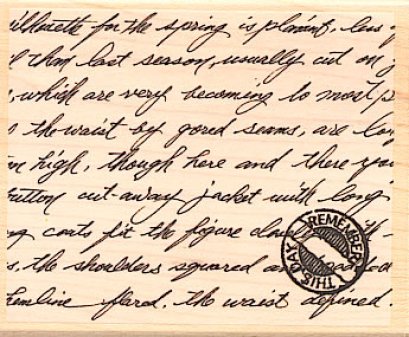 silhouette for the spring is pliant, less
than last season, usually cut on
, which are very becoming to most
the waist by gored seams, are
high, though here and there you
button cut-away jacket with long
coats fit the figure
, the shoulders squared
hemline flared, the waist defined.
REMEMBER
THIS DAY